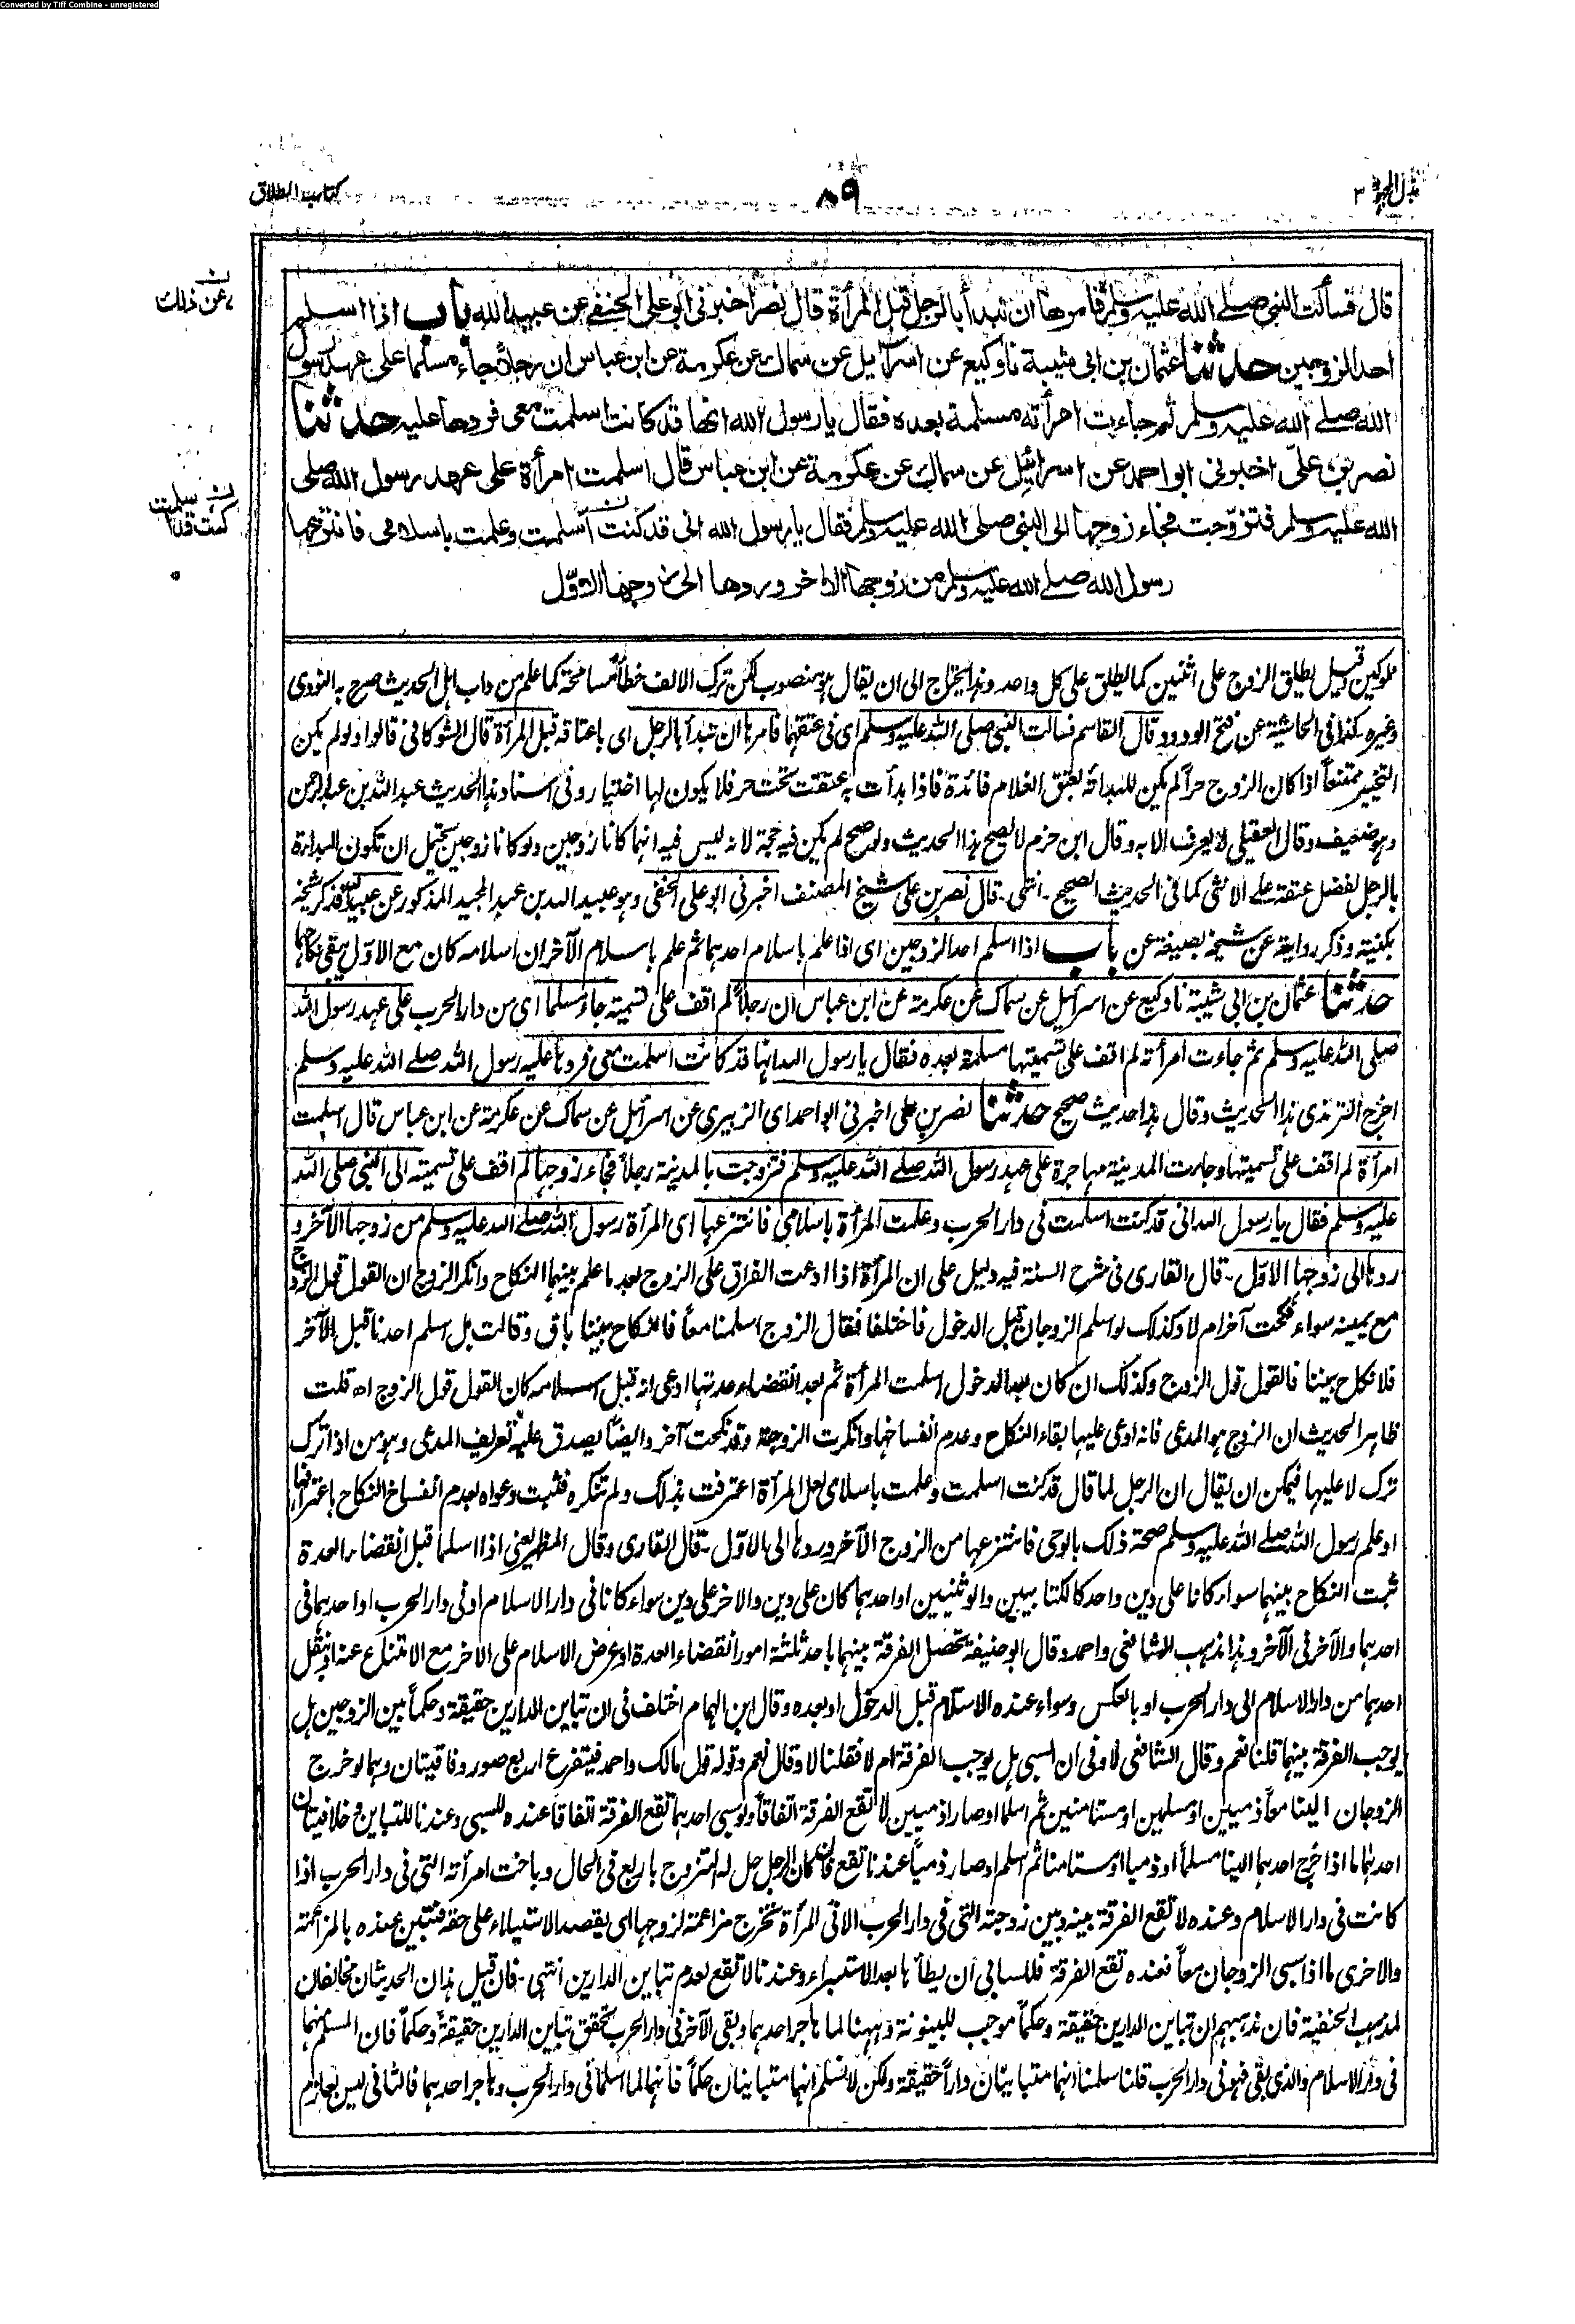 Converted by Tiff Combine - unregistered
بذل المجهود ٣
٨٩
كتاب الطلاق
قال فسألت النبي صلے الله عليه وسلم فامرها ان تبدأ بالرجل قبل المرأة قال نصر اخبرنى ابو على الحنفى عن عبيد الله باب اذا اسلم
احد الزوجين حدثنا عثمان بن ابى شيبة نا وكيع عن اسرآئيل عن سماك عن عكرمة عن ابن عباس ان رجلا جاء مسلما على عهد رسول
الله صلے الله عليه وسلم ثم جاءت امرأته مسلمة بعده فقال يا رسول الله انها قد كانت اسلمت معى فردها عليه حدثنا
نصر بن علىّ اخبرنى ابو احمد عن اسرائيل عن سماك عن عكرمة عن ابن عباس قال اسلمت امرأة على عهد رسول الله صلى
الله عليه وسلم فتزوّجت فجاء زوجها الى النبى صلى الله عليه وسلم فقال يا رسول الله انى قد كنت اسلمت وعلمت باسلامى فانتزعها
رسول الله صلے الله عليه وسلم من زوجها الاخر وردها الى زوجها الاوّل
ن عن ذلك
ن
كنت قد اسلمت
مملوكين قيل يطلق الزوج على اثنين كما يطلق على كل واحد وهذا يحتاج الى ان يقال هو منصوب لكن ترك الالف خطأ مسامحة كما علم من داب اهل الحديث صرح به النووى
وغيره كذا فى الحاشية عن فتح الودود قال القاسم فسالت النبى صلى الله عليه وسلم اى فى عتقهما فامرها ان تبدأ بالرجل اى باعتاقه قبل المرأة قال الشوكانى قالوا ولو لم يكن
التخيير ممتنعاً اذا كان الزوج حراً لم يكن للبداءة بعتق الغلام فائدة فاذا بدأت به عتقت تحت حر فلا يكون لها اختيار وفى اسناد هذا الحديث عبد الله بن عبد الرحمن
وهو ضعيف وقال العقيلى لا يعرف الا به وقال ابن حزم لا يصح هذا الحديث ولو صح لم يكن فيه حجة لانه ليس فيه انهما كانا زوجين ولو كانا زوجين يحتمل ان تكون البداءة
بالرجل لفضل عتقه على الانثى كما فى الحديث الصحيح ۔ انتهى ۔ قال نصر بن على شيخ المصنف اخبرنى ابو على الحنفى وهو عبيد الله بن عبد المجيد المذكور عن عبيد الله فذكر شيخه
بكنيته وذكر روايته عن شيخه بصيغة عن باب اذا اسلم احد الزوجين اى اذا علم باسلام احدهما ثم علم باسلام الآخر ان اسلامه كان مع الاول يبقى نكاحهما
حدثنا عثمان بن ابى شيبة نا وكيع عن اسرآئيل عن سماك عن عكرمة عن ابن عباس ان رجلاً لم اقف على تسميته جاء مسلماً اى من دار الحرب على عهد رسول الله
صلى الله عليه وسلم ثم جاءت امرأته لم اقف على تسميتها مسلمة بعده فقال يا رسول الله انها قد كانت اسلمت معى فردها عليه رسول الله صلے الله عليه وسلم
اخرج الترمذى هذا الحديث وقال هذا حديث صحيح حدثنا نصر بن على اخبرنى ابو احمد اى الزبيرى عن اسرائيل عن سماك عن عكرمة عن ابن عباس قال اسلمت
امرأة لم اقف على تسميتها وجاءت المدينة مهاجرة على عهد رسول الله صلے الله عليه وسلم فتزوجت بالمدينة رجلاً فجاء زوجها لم اقف على تسميته الى النبى صلى الله
عليه وسلم فقال يا رسول الله انى قد كنت اسلمت فى دار الحرب وعلمت المرأة باسلامى فانتزعها اى المرأة رسول الله صلے الله عليه وسلم من زوجها الآخر و
ردها الى زوجها الاول ۔ قال القارى فى شرح السنة فيه دليل على ان المرأة اذا ادعت الفراق على الزوج بعد ما علم بينهما النكاح وانكر الزوج ان القول قول الزوج
مع يمينه سواء نكحت آخر ام لا وكذلك لو اسلم الزوجان قبل الدخول فاختلفا فقال الزوج اسلمنا معاً فالنكاح بيننا باق وقالت بل اسلم احدنا قبل الآخر
فلا نكاح بيننا فالقول قول الزوج وكذلك ان كان بعد الدخول اسلمت المرأة ثم بعد انقضاء عدتها ادعى انه قبل اسلامه كان القول قول الزوج اه قلت
ظاهر الحديث ان الزوج هو المدعى فانه ادعى عليها بقاء النكاح وعدم انفساخها وانكرت الزوجة وقد نكحت آخر وايضاً يصدق عليه تعريف المدعى وهو من اذا ترك
ترك لا عليها فيمكن ان يقال ان الرجل لما قال قد كنت اسلمت وعلمت باسلامى لعل المرأة اعترفت بذلك ولم تنكره فثبت دعواه بعدم انفساخ النكاح باعترافها
او علم رسول الله صلے الله عليه وسلم صحة ذلك بالوحى فانتزعها من الزوج الآخر وردها الى الاول ۔ قال القارى وقال المظهر يعنى اذا اسلما قبل انقضاء العدة
ثبت النكاح بينهما سواء كانا على دين واحد كالكتابيين والوثنيين او احدهما كان على دين والاخر على دين سواء كانا فى دار الاسلام او فى دار الحرب او احدهما فى
احدهما والآخر فى الآخر وهذا مذهب الشافعى واحمد وقال ابو حنيفة تحصل الفرقة بينهما باحد ثلثة امور انقضاء العدة او عرض الاسلام على الاخر مع الامتناع عنه او بنقل
احدهما من دار الاسلام الى دار الحرب او بالعكس وسواء عنده الاسلام قبل الدخول او بعده وقال ابن الهمام اختلف فى ان تباين الدارين حقيقة وحكماً بين الزوجين هل
يوجب الفرقة بينهما قلنا نعم وقال الشافعى لا وفى ان السبى هل يوجب الفرقة ام لا فقلنا لا وقال نعم وقوله قول مالك واحمد فيتفرع اربع صور وفاقيتان وهما لو خرج
الزوجان الينا معاً ذميين او مسلمين او مستامنين ثم اسلما او صارا ذميين لا تقع الفرقة اتفاقاً ولو سبى احدهما تقع الفرقة اتفاقا عنده للسبى وعندنا للتباين وخلافيتان
احدهما ما اذا خرج احدهما الينا مسلماً او ذميا او مستامنا ثم اسلم او صار ذمياً عندنا تقع فان كان الرجل حل له التزوج باربع فى الحال وباخت امرأته التى فى دار الحرب اذا
كانت فى دار الاسلام وعنده لا تقع الفرقة بينه وبين زوجته التى فى دار الحرب الا فى المرأة تخرج مراغمة لزوجها اى يقصد الاستيلاء على حقه فتبين عنده بالمراغمة
والاخرى ما اذا سبى الزوجان معاً فعنده تقع الفرقة فللسابى ان يطأها بعد الاستبراء وعندنا لا تقع لعدم تباين الدارين انتهى ۔ فان قيل هذان الحديثان مخالفان
لمذهب الحنفية فان مذهبهم ان تباين الدارين حقيقة وحكماً موجب للبينونة وههنا لما هاجر احدهما وبقى الآخر فى دار الحرب تحقق تباين الدارين حقيقة وحكماً فان المسلم منهما
فى دار الاسلام والذى بقى فهو فى دار الحرب قلنا سلمنا انهما متباينان داراً حقيقة ولكن لا نسلم انهما متباينان حكماً فانهما لما اسلما فى دار الحرب وهاجر احدهما فالثانى ليس